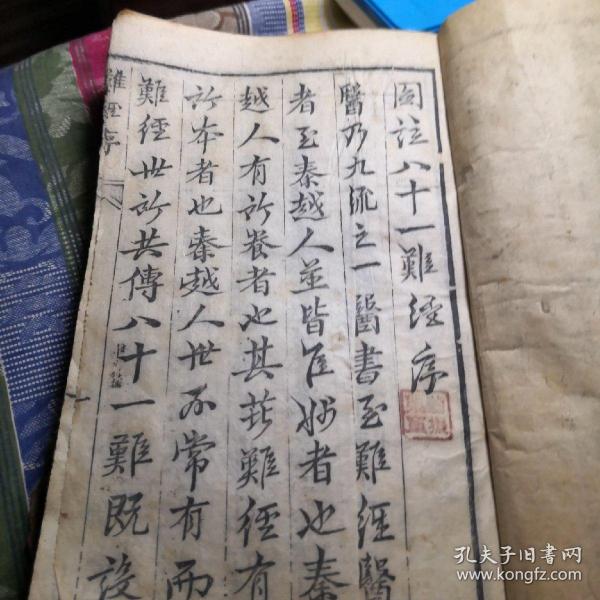 圖註八十一難經序
醫乃九流之一醫書至難經醫
者至秦越人並皆隹妙者也秦
越人有所養者也其著難經有
所本者也秦越人世不常有而
難經世所共傳八十一難既設
難經序
孔夫子旧书网
www.kongfz.com